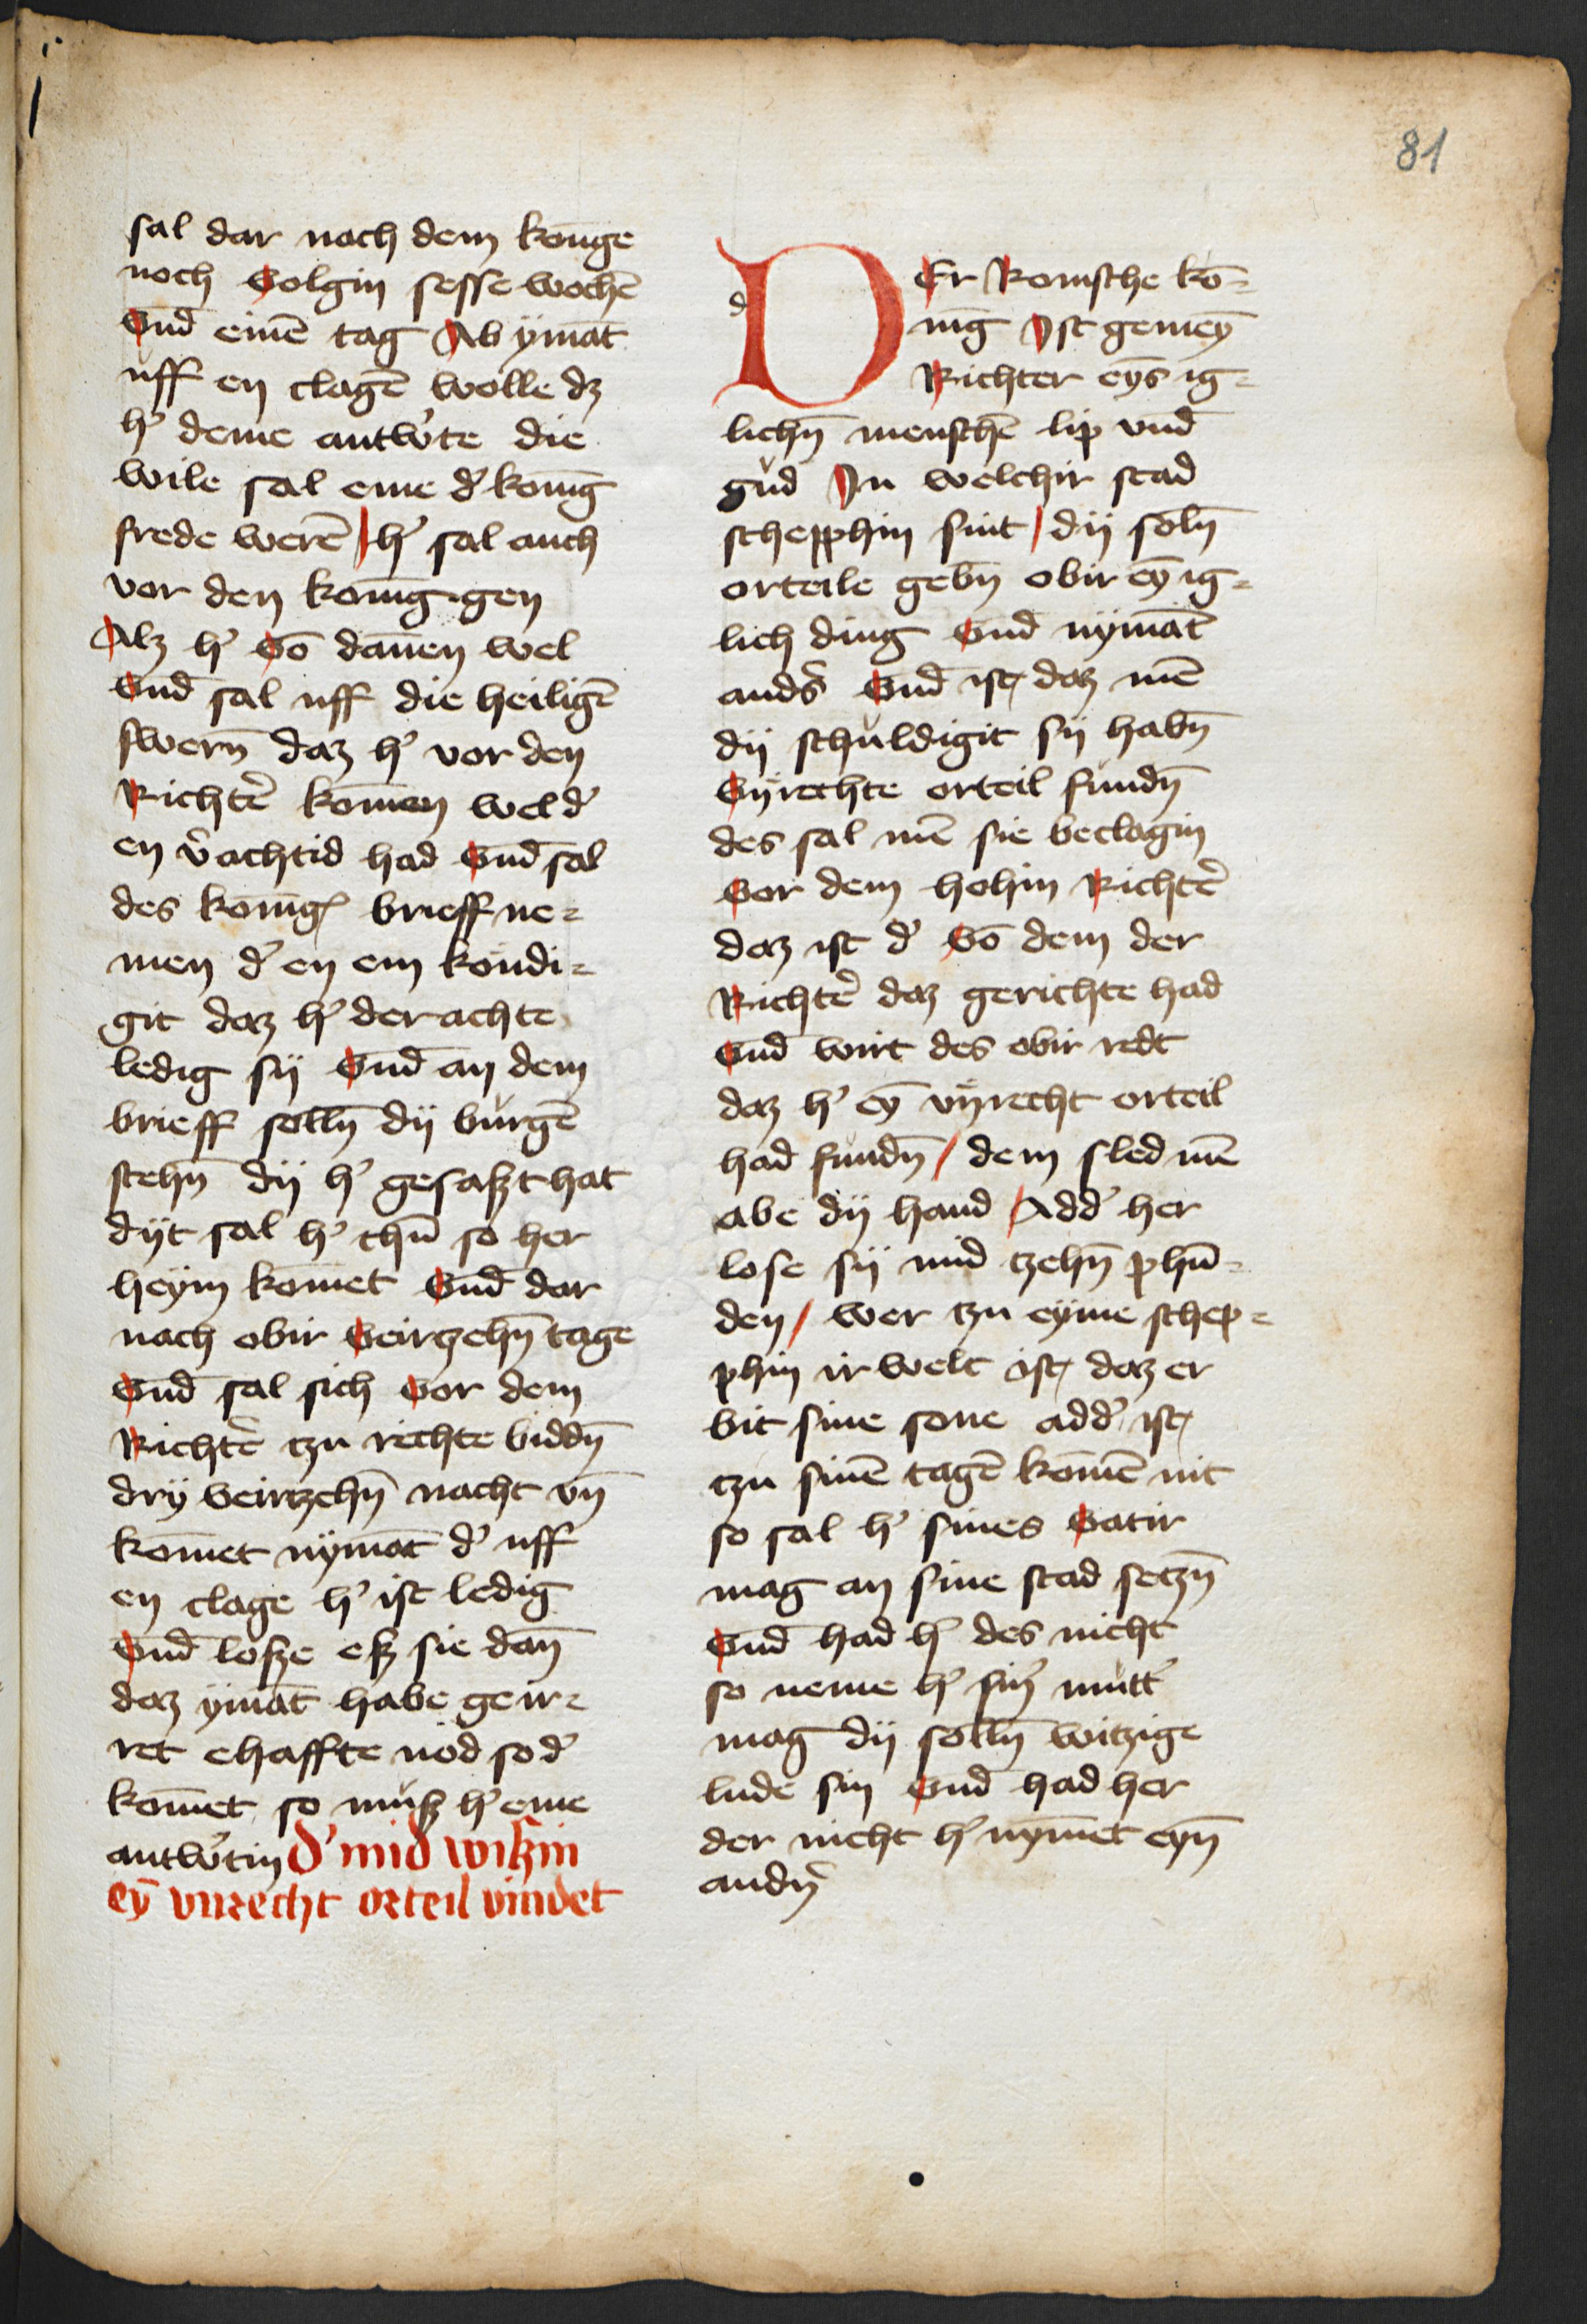 81
sal dar nach dem konīge
noch Volgin sesse wochē
Vnd̄ einē tag Ab ÿmāt
uff en clagē wolle dz
h' deme antw'te die
wile sal eme d' konīg
frede werē / h' sal auch
vor den konīg gen
Alz h' Vō dānen wel
Vnd̄ sal uff die heiligē
swern̄ daz h' vor den
Richt'e kōmen wel d'
en v'achtid had Vnd̄ sal
des konīgs brieff ne=
men d' en em kondi=
git daz h' der achte
ledig sÿ Vnd̄ an dem
brieff solln̄ dÿ burgē
stehn̄ dÿ h' gesaszt hat
dÿt sal h' thū so her
heÿm kōmet Vnd̄ dar
nach obir Veirzehn̄ tage
Vnd̄ sal sich Vor dem
Richt'e tzu rechte biddn̄
drÿ veirtzehn̄ nacht vn̄
kōmet nÿmāt d' uff
en clage h' ist ledig
Vnd̄ losze esz sie dan̄
daz ÿmāt habe geir=
ret ehaffte nod so d'
kōmet so musz h' eme
antw'tin d' mid wiszin
eȳ vnrecht orteil vindet
d
DEr Romsche kō=
nīg Ist gemeȳ
Richter eȳs ig=
lichn̄ menschē lip vnd̄
gud In welchir stad
schepphin sint / dÿ soln̄
orteile gebn̄ obir eȳ ig=
lich ding Vnd̄ nÿmāt
and's Vnd̄ ist daz mē
dÿ schuldigit sÿ habn̄
Vn̄rechte orteil fundn̄
des sal mē sie beclagin
Vor dem hohin Richt'e
daz ist d' Vō dem der
Richt'e daz gerichte had
Vnd̄ wirt des obir redt
daz h' eȳ vn̄recht orteil
had fundn̄ / dem sled mē
abe dÿ hand / Add' her
lose sÿ mid tzehn̄ phū=
den / wer tzu eÿme schep=
phin ir welt ist daz er
bit sine sone add' ist
tzu sinē tagē kōmē nit
so sal h' sines Vatir
mag an sine stad setzn̄
Vnd̄ had h' des nicht
so neme h' sin' mutt'
mag dÿ solln̄ witzige
lude sin Vnd̄ had her
der nicht h' nȳmet eyn̄
andn̄